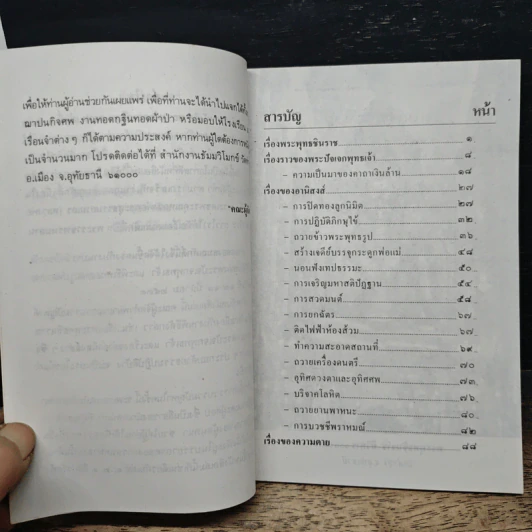 เพื่อให้ท่านผู้อ่านช่วยกันเผยแพร่ เพื่อที่ท่านจะได้นำไปแจกได้
ฌาปนกิจศพ งานทอดกฐินทอดผ้าป่า หรือมอบให้โรงเรียน
เรือนจำต่าง ๆ ก็ได้ตามความประสงค์ หากท่านผู้ใดต้องการ
เป็นจำนวนมาก โปรดติดต่อได้ที่ สำนักงานธัมมวิโมกข์ วัด
อ.เมือง จ.อุทัยธานี ๖๑๐๐๐
สารบัญ หน้า
เรื่องพระพุทธชินราช ๑
เรื่องราวของพระปัจเจกพุทธเจ้า ๘
– ความเป็นมาของคาถาเงินล้าน ๑๘
เรื่องของอานิสงส์ ๒๗
– การปิดทองลูกนิมิต ๒๗
– การปฏิบัติภิกษุไข้ ๓๒
– ถวายข้าวพระพุทธรูป ๓๖
– สร้างเจดีย์บรรจุกระดูกพ่อแม่ ๔๘
– นอนฟังเทปธรรมะ ๕๐
– การเจริญมหาสติปัฏฐาน ๕๔
– การสวดมนต์ ๕๘
– การยกฉัตร ๖๗
– ติดไฟฟ้าห้องส้วม ๖๗
– ทำความสะอาดสถานที่ ๖๙
– ถวายเครื่องดนตรี ๗๐
– อุทิศดวงตาและอุทิศศพ ๗๓
– บริจาคโลหิต ๗๖
– ถวายยานพาหนะ ๘๐
– การบวชชีพราหมณ์ ๘๒
เรื่องของความตาย ๘๘